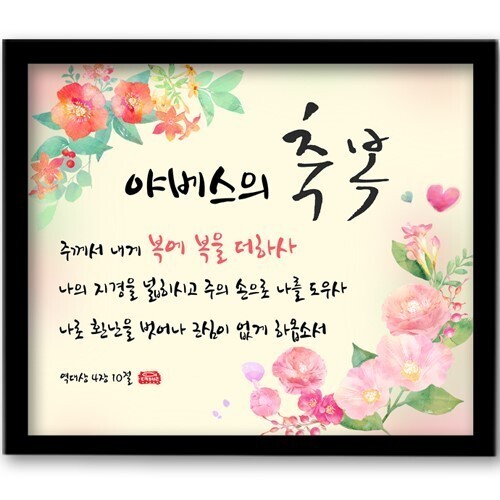 야베스의 축복
주께서 내게 복에 복을 더하사
나의 지경을 넓히시고 주의 손으로 나를 도우사
나로 환난을 벗어나 근심이 없게 하옵소서
역대상 4장 10절